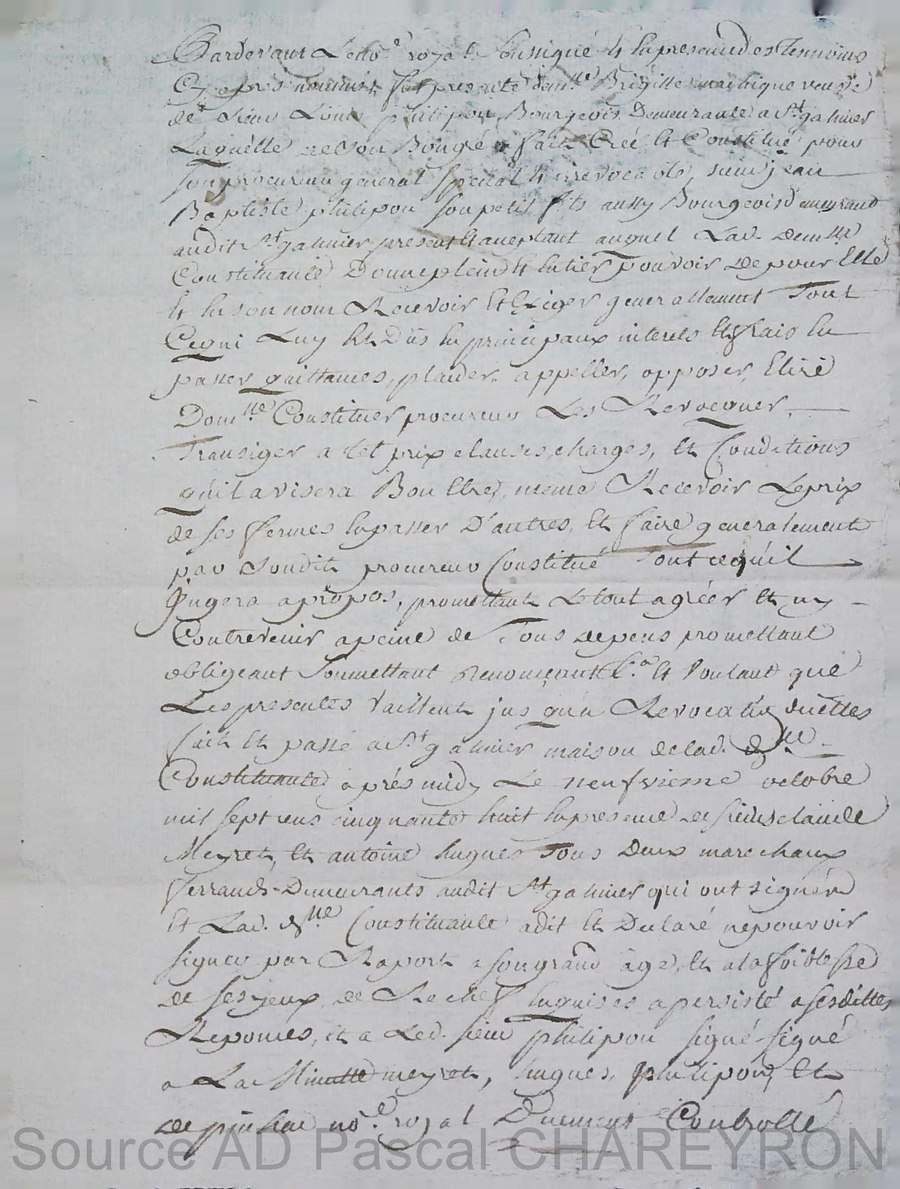 Pardevant Le no.e royal Soussigné Et En presence des Temoins
Cy apres nommés fut presente dem.lle Brigitte veuve
de Sieur Louis philipon Bourgeois Demeurante a St galmier
Laquelle de son Bon gré a fait Créé Et Constitué pour
Son procureur general Special Et irrevocable, sieur jean
Baptiste philipon Son petit fils aussy Bourgeois demeurant
audit St galmier present Et aceptant auquel Lad. dem.lle
Constituante Donne plein Et Entier pouvoir de pour Elle
Et En son nom Recevoir Et Exiger generallement Tout
Ce qui Luy Est Dûs En principaux interets Et frais En
passer quittances, plaider, appeller, opposer, Elire
Dom.lle Constituer procureur Les Revocquer,
Transiger a tel prix clauses, charges, Et Conditions
qu'il avisera Bon Etre, meme Recevoir Le prix
de ses fermes En passer D'autres, Et faire generalement
par Sondit procureur Constitué Tout ce qu'il
jugera apropos, promettant Le tout agréer Et ny
Contrevenir a peine de Tous depens promettant
obligeant Soumettant Renonceant &.a Et Voulant que
Les presentes Vaillent jus qu'a Revocation d'icelles
fait Et passé a St galmier maison de lad. d.lle
Constituante aprés midy Le neufvieme octobre
mil sept cens cinquante huit En presence de Sieurs claude
Meyret, Et antoine hugues Tous Deux marechaux
ferrands Demeurants audit St galmier qui ont signés
Et Lad. d.lle Constituante a dit Et Declaré ne pouvoir
signer par Raport a son grand age, Et a la foiblesse
de ses yeux, de Rechef Enquises a persisté a ses dittes
Reponses, Et a Led. sieur philipon signé signé
a La Minutte meyret, hugues, philipon, Et
no.e royal Duement Controllé
Source AD Pascal CHAREYRON